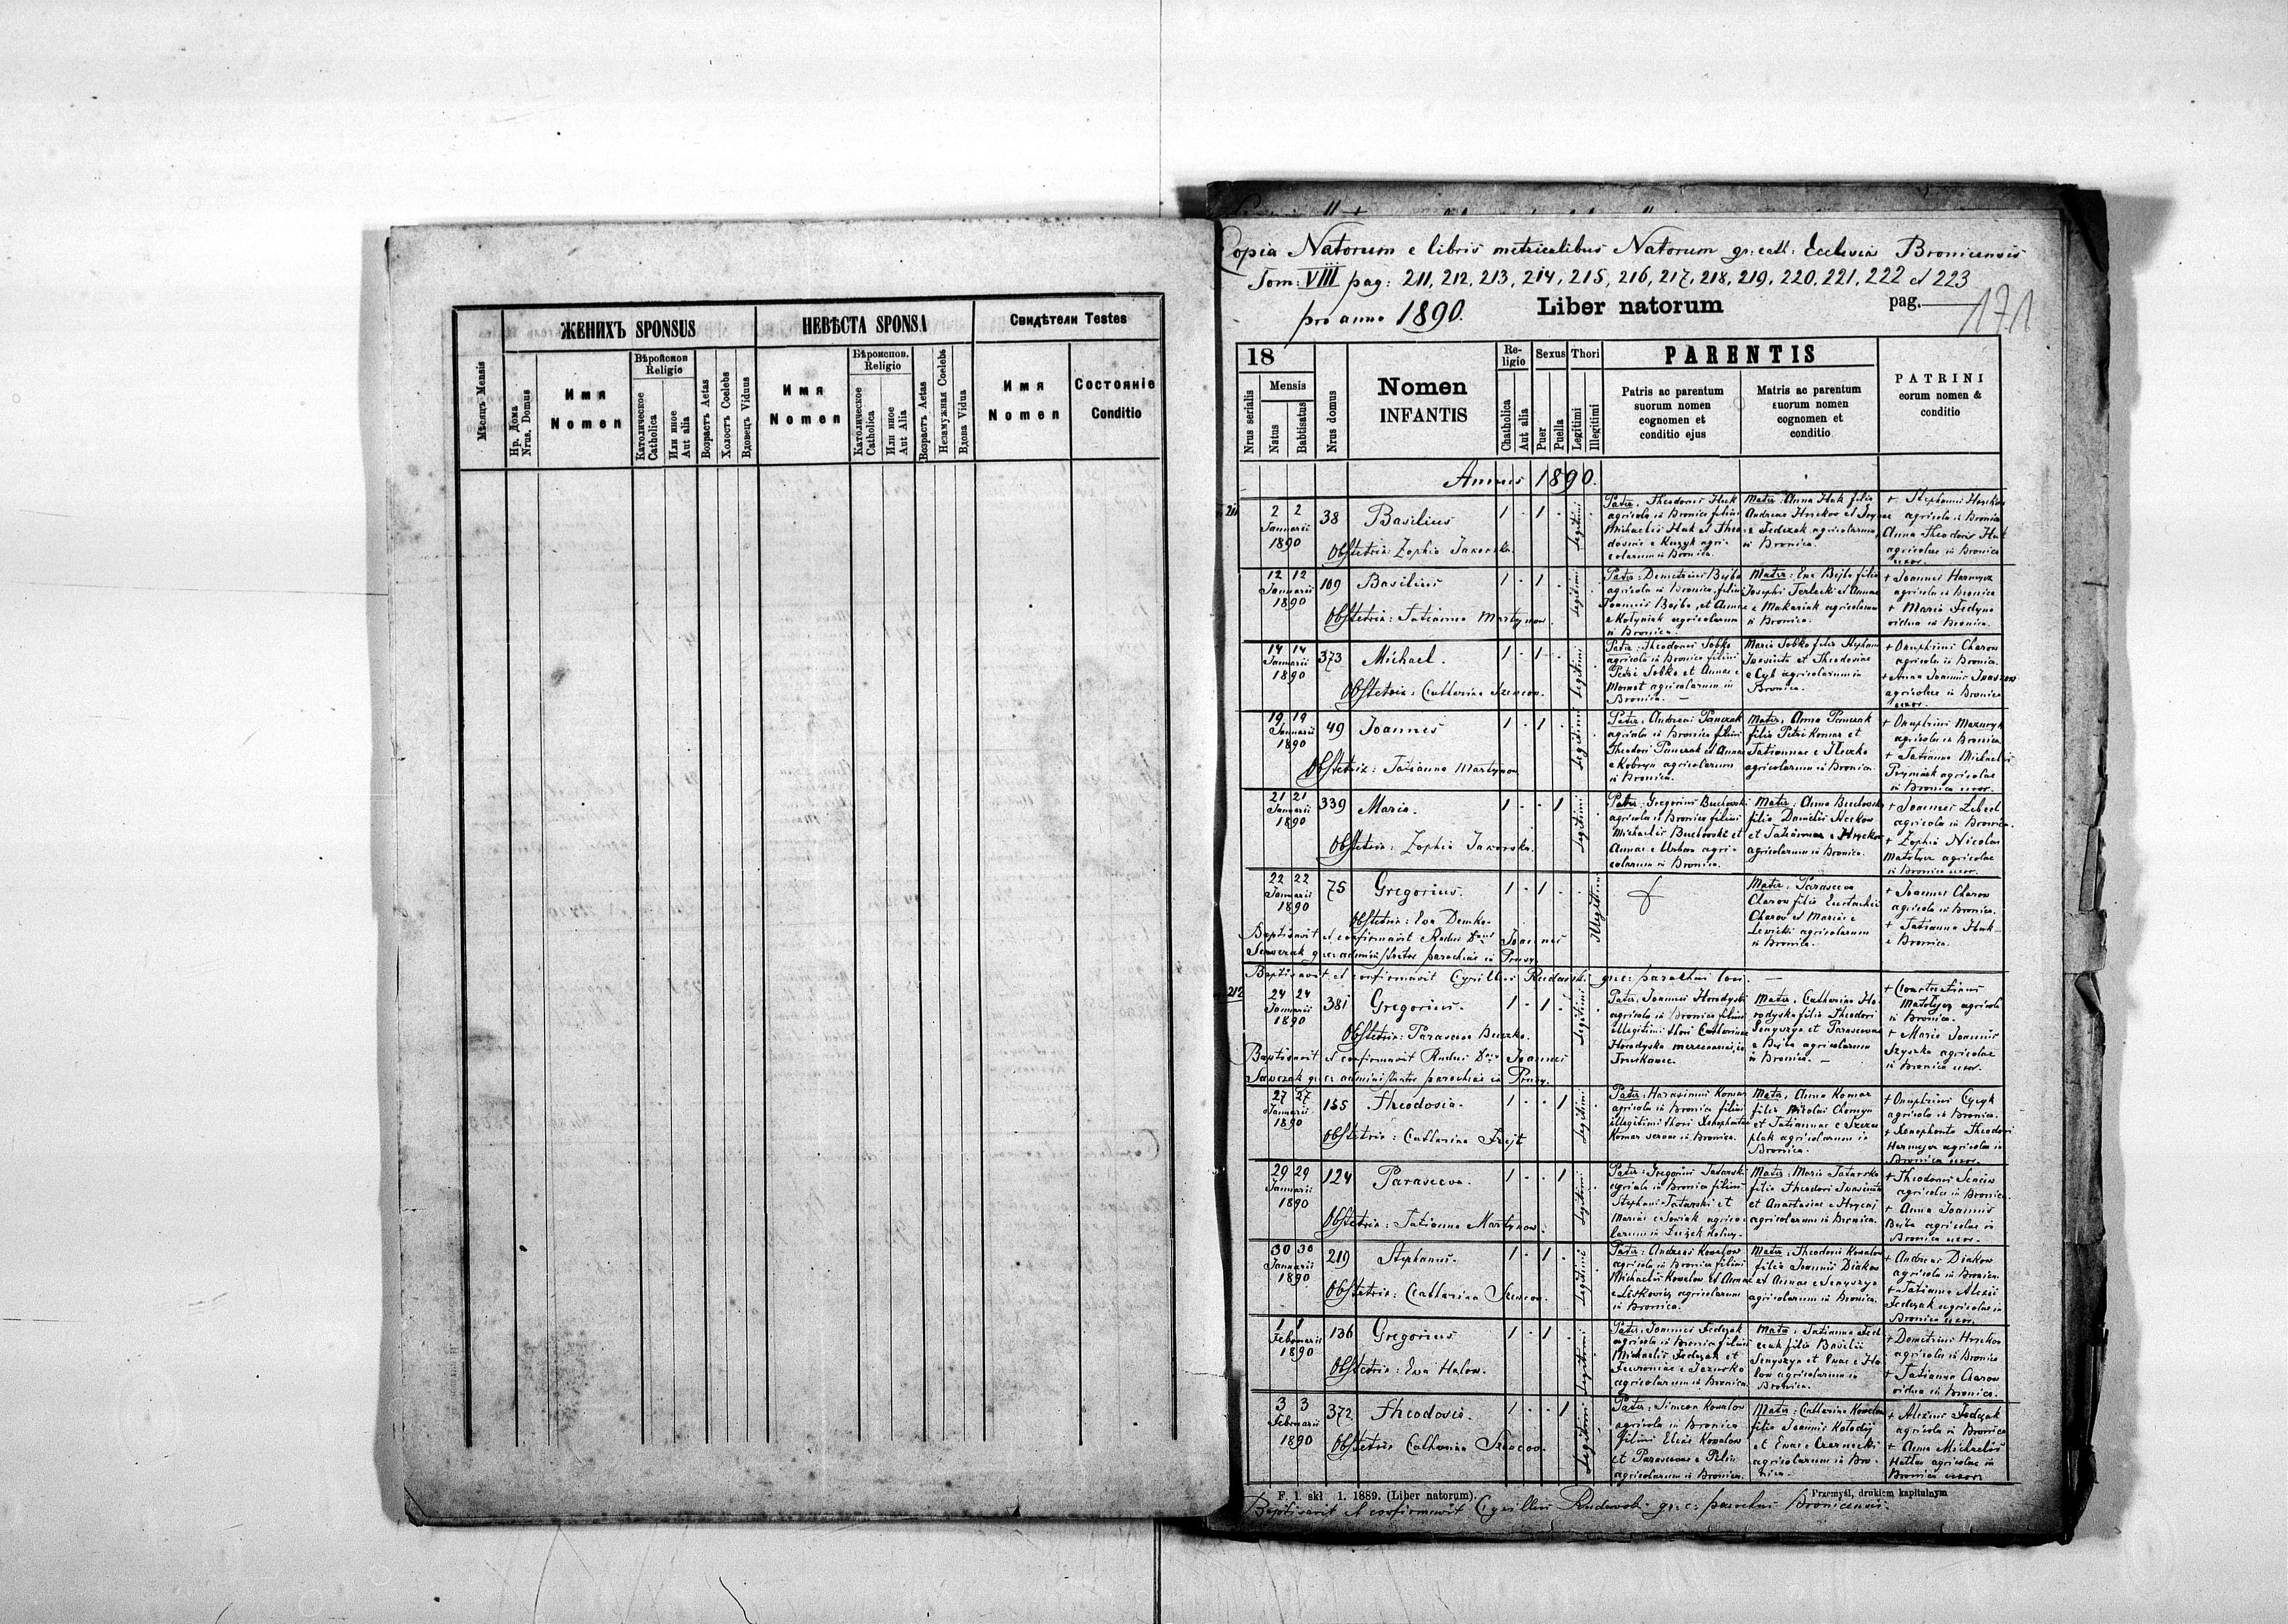 ЖЕНИХЪ SPONSUS
НЕВѢСТА SPONSA
Свидѣтели Testes
Мѣсяцъ Mensis
Нр. Дома
Nrus. Domus
Имя
Nomen
Religio
Католическое
Catholica
Или иное
Aut alia
Возрастъ Aetas
Холостъ Coelebs
Вдовецъ Vidus
Имя
Nomen
Religio
Католическое
Catholica
Или иное
Aut Alia
Возрастъ Aetas
Незамужная Coelebs
Вдова Vidua
Имя
Nomen
Состояніе
Conditio
Copia Natorum e libris metricalibus Natorum gr: cath: Ecclesia Bronicensis
Tom: VIII pag: 211, 212, 213, 214, 215, 216, 217, 218, 219, 220, 221, 222 et 223
pro anno 1890.
Liber natorum
pag.
171
18
Nrus serialis
Mensis
Natus
Babtisatus
Nrus domus
Nomen
INFANTIS
Re-
ligio
Chatholica
Aut alia
Sexus
Puer
Puella
Thori
Legitimi
Illegitimi
PARENTIS
Patris ac parentum
suorum nomen
cognomen et
conditio ejus
Matris ac parentum
suorum nomen
cognomen et
conditio
PATRINI
eorum nomen &
conditio
Annus 1890.
211
2 2
Januarii
1890
38
Basilius
1 . 1 .
Legitimi
Obstetrix: Zophia Jaworska.
Pater: Theodorus Huk
agricola in Bronica filius
Michaelis Huk et Theo-
dosiae e Kuzyk agri-
colarum in Bronica.
Mater: Anna Huk filia
Andreae Hryckow et
e Fedczak agricolarum
in Bronica.
agricola in Bronica
Anna Theodori Huk
agricolae in Bronica
uxor.
12 12
Januarii
1890
109
Basilius
1 . 1 .
Legitimi
Obstetrix: Tatianna Martynow.
Pater: Demetrius Bejba
agricola in Bronica filius
Joannis Bejba et Annae
agricolarum
in Bronica.
Mater: Eva Bejba filia
Josephi Terlecki et Annae
e Makariak agricolarum
in Bronica.
+ Joannes
agricola in Bronica
+ Maria Fedyna
vidua in Bronica.
14 14
Januarii
1890
373
Michael.
1 . 1 .
Legitimi
Obstetrix: Catharina Szewcow.
Pater: Theodorus Sobko
agricola in Bronica filius
Petri Sobko et Annae e
agricolarum in
Bronica.
Maria Sobko filia Stephani
et Theodosiae
e Cyb agricolarum in
Bronica.
+ Onuphrius Charow
agricola in Bronica.
+ Anna Joannis
agricolae in Bronica
uxor.
19 19
Januarii
1890
49
Joannes
1 . 1 .
Legitimi
Obstetrix: Tatianna Martynow
Pater: Andreas Panczak
agricola in Bronica filius
Theodori Panczak et Annae
e Kobryn agricolarum
in Bronica.
Mater: Anna Panczak
filia Petri Komar et
Tatiannae e
agricolarum in Bronica.
+ Onuphrius Mazuryk
agricola in Bronica
+ Tatianna Michaelis
Prymak agricolae
in Bronica uxor.
21 21
Januarii
1890
339
Maria.
1 . . 1
Legitimi
Obstetrix: Zophia Jaworska.
Pater: Gregorius Buchowski
agricola in Bronica filius
Michaelis Buchowski et
Annae e Urban agri-
colarum in Bronica.
Mater: Anna Buchowska
filia Danielis Hrckow
et Tatiannae e Hryckow
agricolarum in Bronica.
+ Joannes Lebed
agricola in Bronica.
+ Zophia Nicolai
Matolycz agricolae
in Bronica uxor.
22 22
Januarii
1890
75
Gregorius.
1 . 1 .
Illegitimi
Obstetrix: Eva Demko.
Baptisavit et confirmavit Rndus Dnus Joannes
Sawczak gr: c: administrator parochiae in Prusy.
Mater: Parasceva
Charow filia Eustachii
Charow et Mariae e
Lewicki agricolarum
in Bronica.
+ Joannes Charow
agricola in Bronica.
+ Tatianna Huk
e Bronica.
Baptisavit et confirmavit Cyrillus Rudawski gr: c: parochus loci.
212
24 24
Januarii
1890
381
Gregorius.
1 . 1 .
Legitimi
Obstetrix: Parasceva Buczko.
Baptisavit et confirmavit Rndus Dnus Joannes
Sawczak gr: c: administrator parochiae in Prusy.
Pater: Joannes Horodyski
agricola in Bronica filius
illegitimi thori Catharinae
Horodyska mercenariae in
Truskawec.
Mater: Catharina Ho-
rodyska filia Theodori
Senyszyn et Parascevae
e Bejba agricolarum
in Bronica.
+ Constantinus
Matolycz agricola
in Bronica.
+ Maria Joannis
Szyszka agricolae
in Bronica uxor.
27 27
Januarii
1890
155
Theodosia.
1 . . 1
Legitimi
Obstetrix: Catharina
Pater: Harasimus Komar
agricola in Bronica filius
illegitimi thori Xenophontae
Komar servae in Bronica.
Mater: Anna Komar
filia Nikolai Chomyn
et Tatiannae e
agricolarum in
Bronica.
+ Onuphrius Cyzyk
agricola in Bronica.
+ Xenophonta Theodori
agricolae in
Bronica uxor.
29 29
Januarii
1890
124
Parasceva.
1 . . 1
Legitimi
Obstetrix: Tatianna Martynow.
Pater: Gregorius Tatarski
agricola in Bronica filius
Stephani Tatarski et
Mariae e Sowiak agrico-
larum in Łużek dolny.
Mater: Maria Tatarska
filia Theodori
et Anastasiae e Hrycaj
agricolarum in Bronica.
+ Theodorus Seniw
agricola in Bronica.
+ Anna Joannis
Bejba agricolae in
Bronica uxor.
30 30
Januarii
1890
219
Stephanus.
1 . 1 .
Legitimi
Obstetrix: Catharina Szewcow.
Pater: Andreas Kowalow
agricola in Bronica filius
Michaelis Kowalow et Annae
e Liskowicz agricolarum
in Bronica.
Mater: Theodosia Kowalow
filia Joannis Diakow
et Annae e Senyszyn
agricolarum in Bronica.
+ Andreas Diakow
agricola in Bronica.
+ Tatianna Alexii
Fedczak agricolae in
Bronica uxor.
1 1
Februarii
1890
136
Gregorius
1 . 1 .
Legitimi
Obstetrix: Eva Halow.
Pater: Joannes Fedczak
agricola in Bronica filius
Michaelis Fedczak et
Fewroniae e Jaworska
agricolarum in Bronica.
Mater: Tatianna Fed-
czak filia Basilii
Senyszyn et Evae e Ha-
low agricolarum in
Bronica.
+ Demetrius Hryckow
agricola in Bronica
+ Tatianna Charow
vidua in Bronica.
3 3
Februarii
1890
372
Theodosia.
1 . . 1
Legitimi
Obstetrix Catharina Szewcow.
Pater: Simeon Kowalow
agricola in Bronica
filius Eliae Kowalow
et Parascevae e Pelin
agricolarum in Bronica.
Mater: Catharina Kowalow
filia Joannis Kolodij
et Evae e Czernecki
agricolarum in Bro-
nica.
+ Alexius Fedczak
agricola in Bronica
+ Anna Michaelis
Hallas agricolae in
Bronica uxor.
F. 1. skł 1. 1889. (Liber natorum).
Przemyśl, drukiem kapitulnym
Baptisavit et confirmavit Cyrillus Rudawski gr: c: parochus Bronicensis.